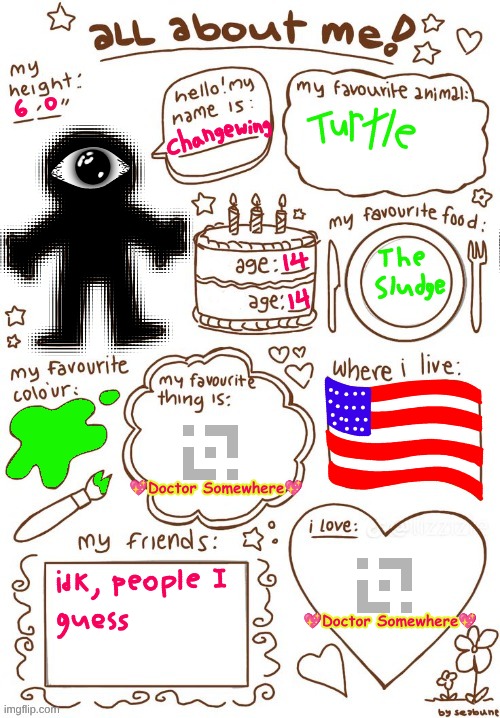 all about me!
my
height:
6'0"
hello! my
name is:
Changewing
my favourite animal:
Turtle
age: 14
age: 14
my favourite food:
The
Sludge
my favourite
colour:
my favourite
thing is:
💖Doctor Somewhere💖
where i live:
my friends:
idk, people I
guess
i love:
💖Doctor Somewhere💖
by seabuns
imgflip.com